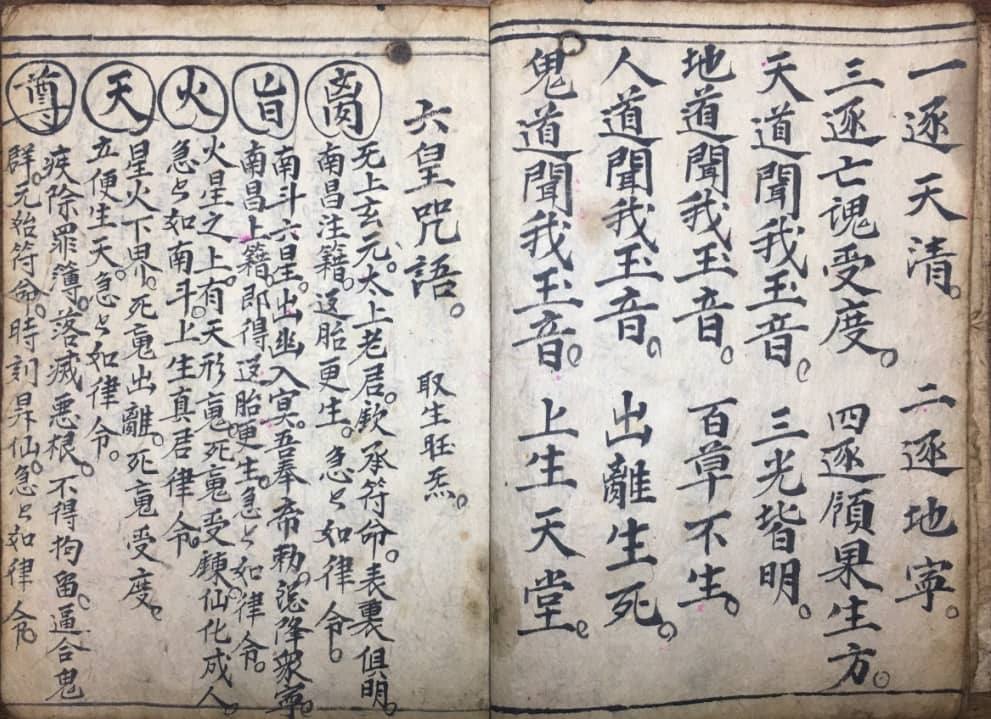 一逐天清。二逐地寧。
三逐亡魂受度。四逐願果生方。
天道聞我玉音。三光皆明。
地道聞我玉音。百草不生。
人道聞我玉音。出離生死。
鬼道聞我玉音。上生天堂。
六皇咒語。取生旺炁。
离
无上玄元。太上老君。欽承符命。表裏俱明。
南昌注籍。返胎更生。急々如律令。
旨
南斗六星。出幽入冥。吾奉帝勅。降眾寧
南昌上籍。即得返胎更生。急々如律令。
火
火星之上。有天形䰟。死䰟受鍊。仙化成人。
急々如南斗上生真君律令。
天
星火下界。死䰟出離。死䰟受度。
五便生天。急々如律令。
尊
疾除罪簿。落滅悪根。不得拘留。逼合鬼
群。元始符命。時刻昇仙。急々如律令。